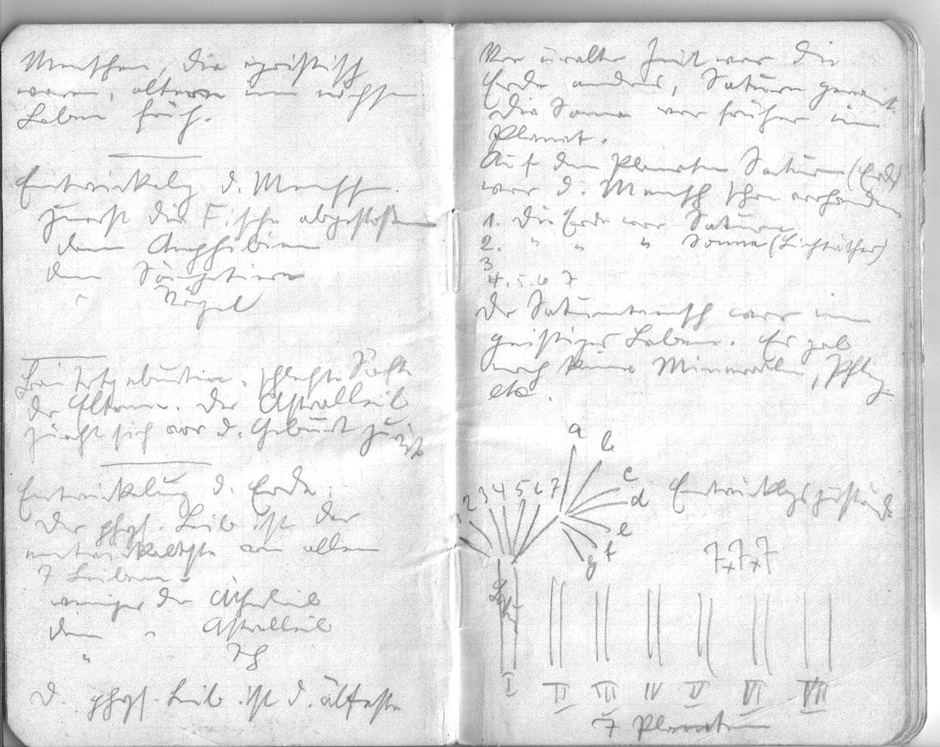 Menschen, die egoistisch
waren, altern im nächsten
Leben früh.
Entwickelg d. Menschen.
Zuerst die Fische abgestoßen
dann Amphibien
dann Säugetiere
" Vögel
Bei Frühgeburten, schlechte Säfte
der Eltern. Der Astralleib
zieht sich vor d. Geburt zurück
Entwickelung d. Erde.
Der phys. Leib ist der
entwickeltste von allen
7 Leibern.
weniger der Ätherleib
dann " Astralleib
" Ich
D. phys. Leib ist d. älteste
Vor uralter Zeit war die
Erde anders, Saturn genannt.
Die Sonne war früher ein
Planet.
Auf dem Planeten Saturn (Erde)
war d. Mensch schon vorhanden
1. Die Erde war Saturn
2. " " " Sonne (Lichtäther)
3
4. 5. 6 7
Der Saturnmensch war ein
geistiges Leben. Es gab
noch keine Mineralien,
etc.
a b c d e f g
1 2 3 4 5 6 7
Entwicklgszustände
7 x 7 x 7
I II III IV V VI VII
7 Planeten